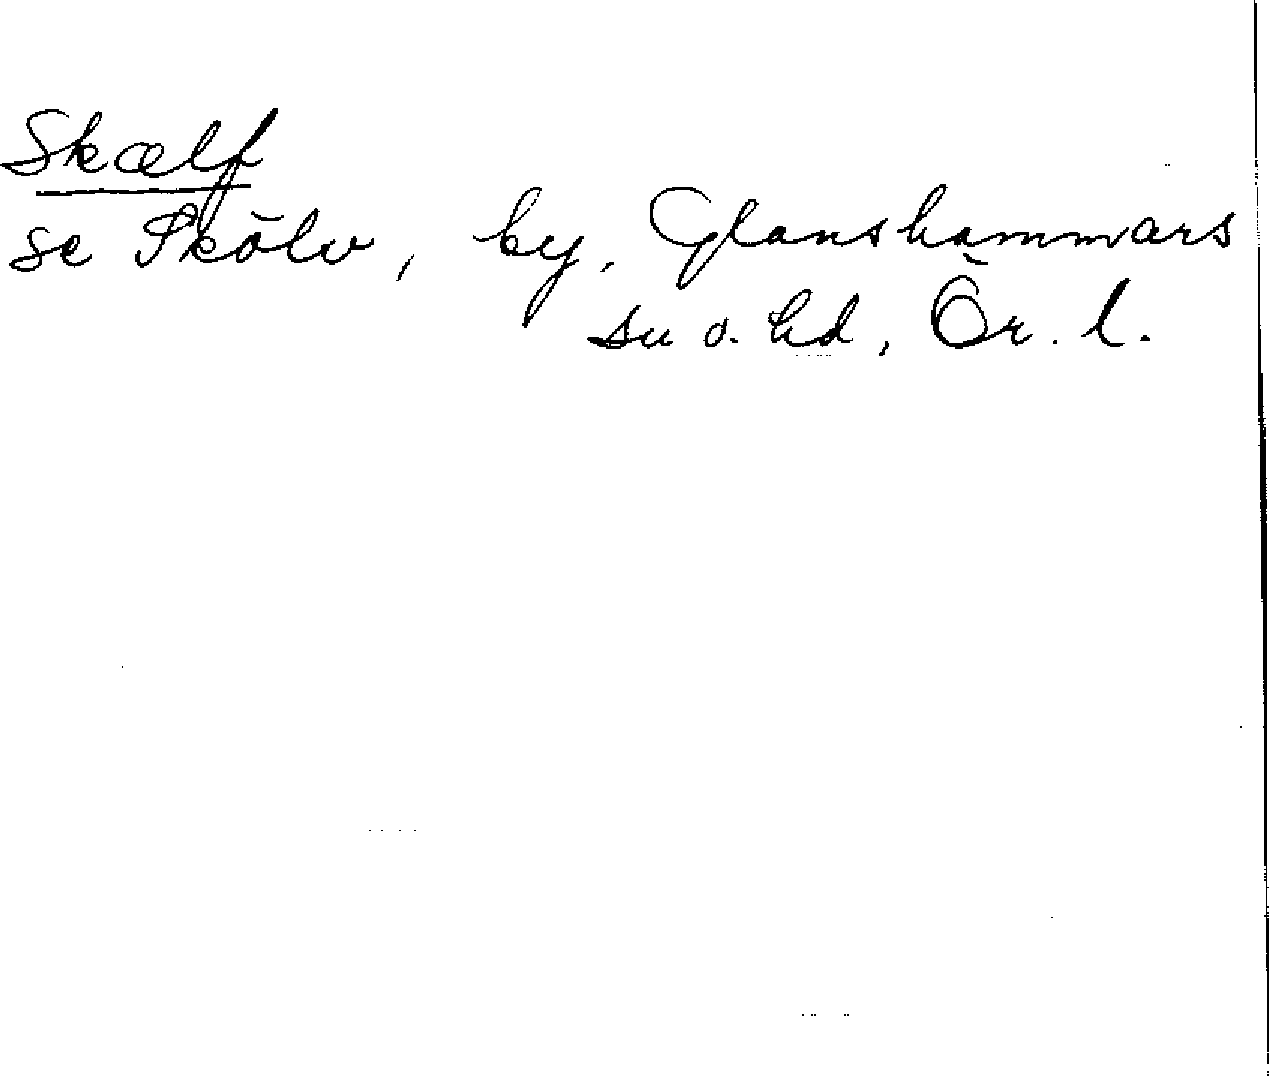 Skælf
se Skölv, by, Glanshammars
sn o. hd, Ör. l.